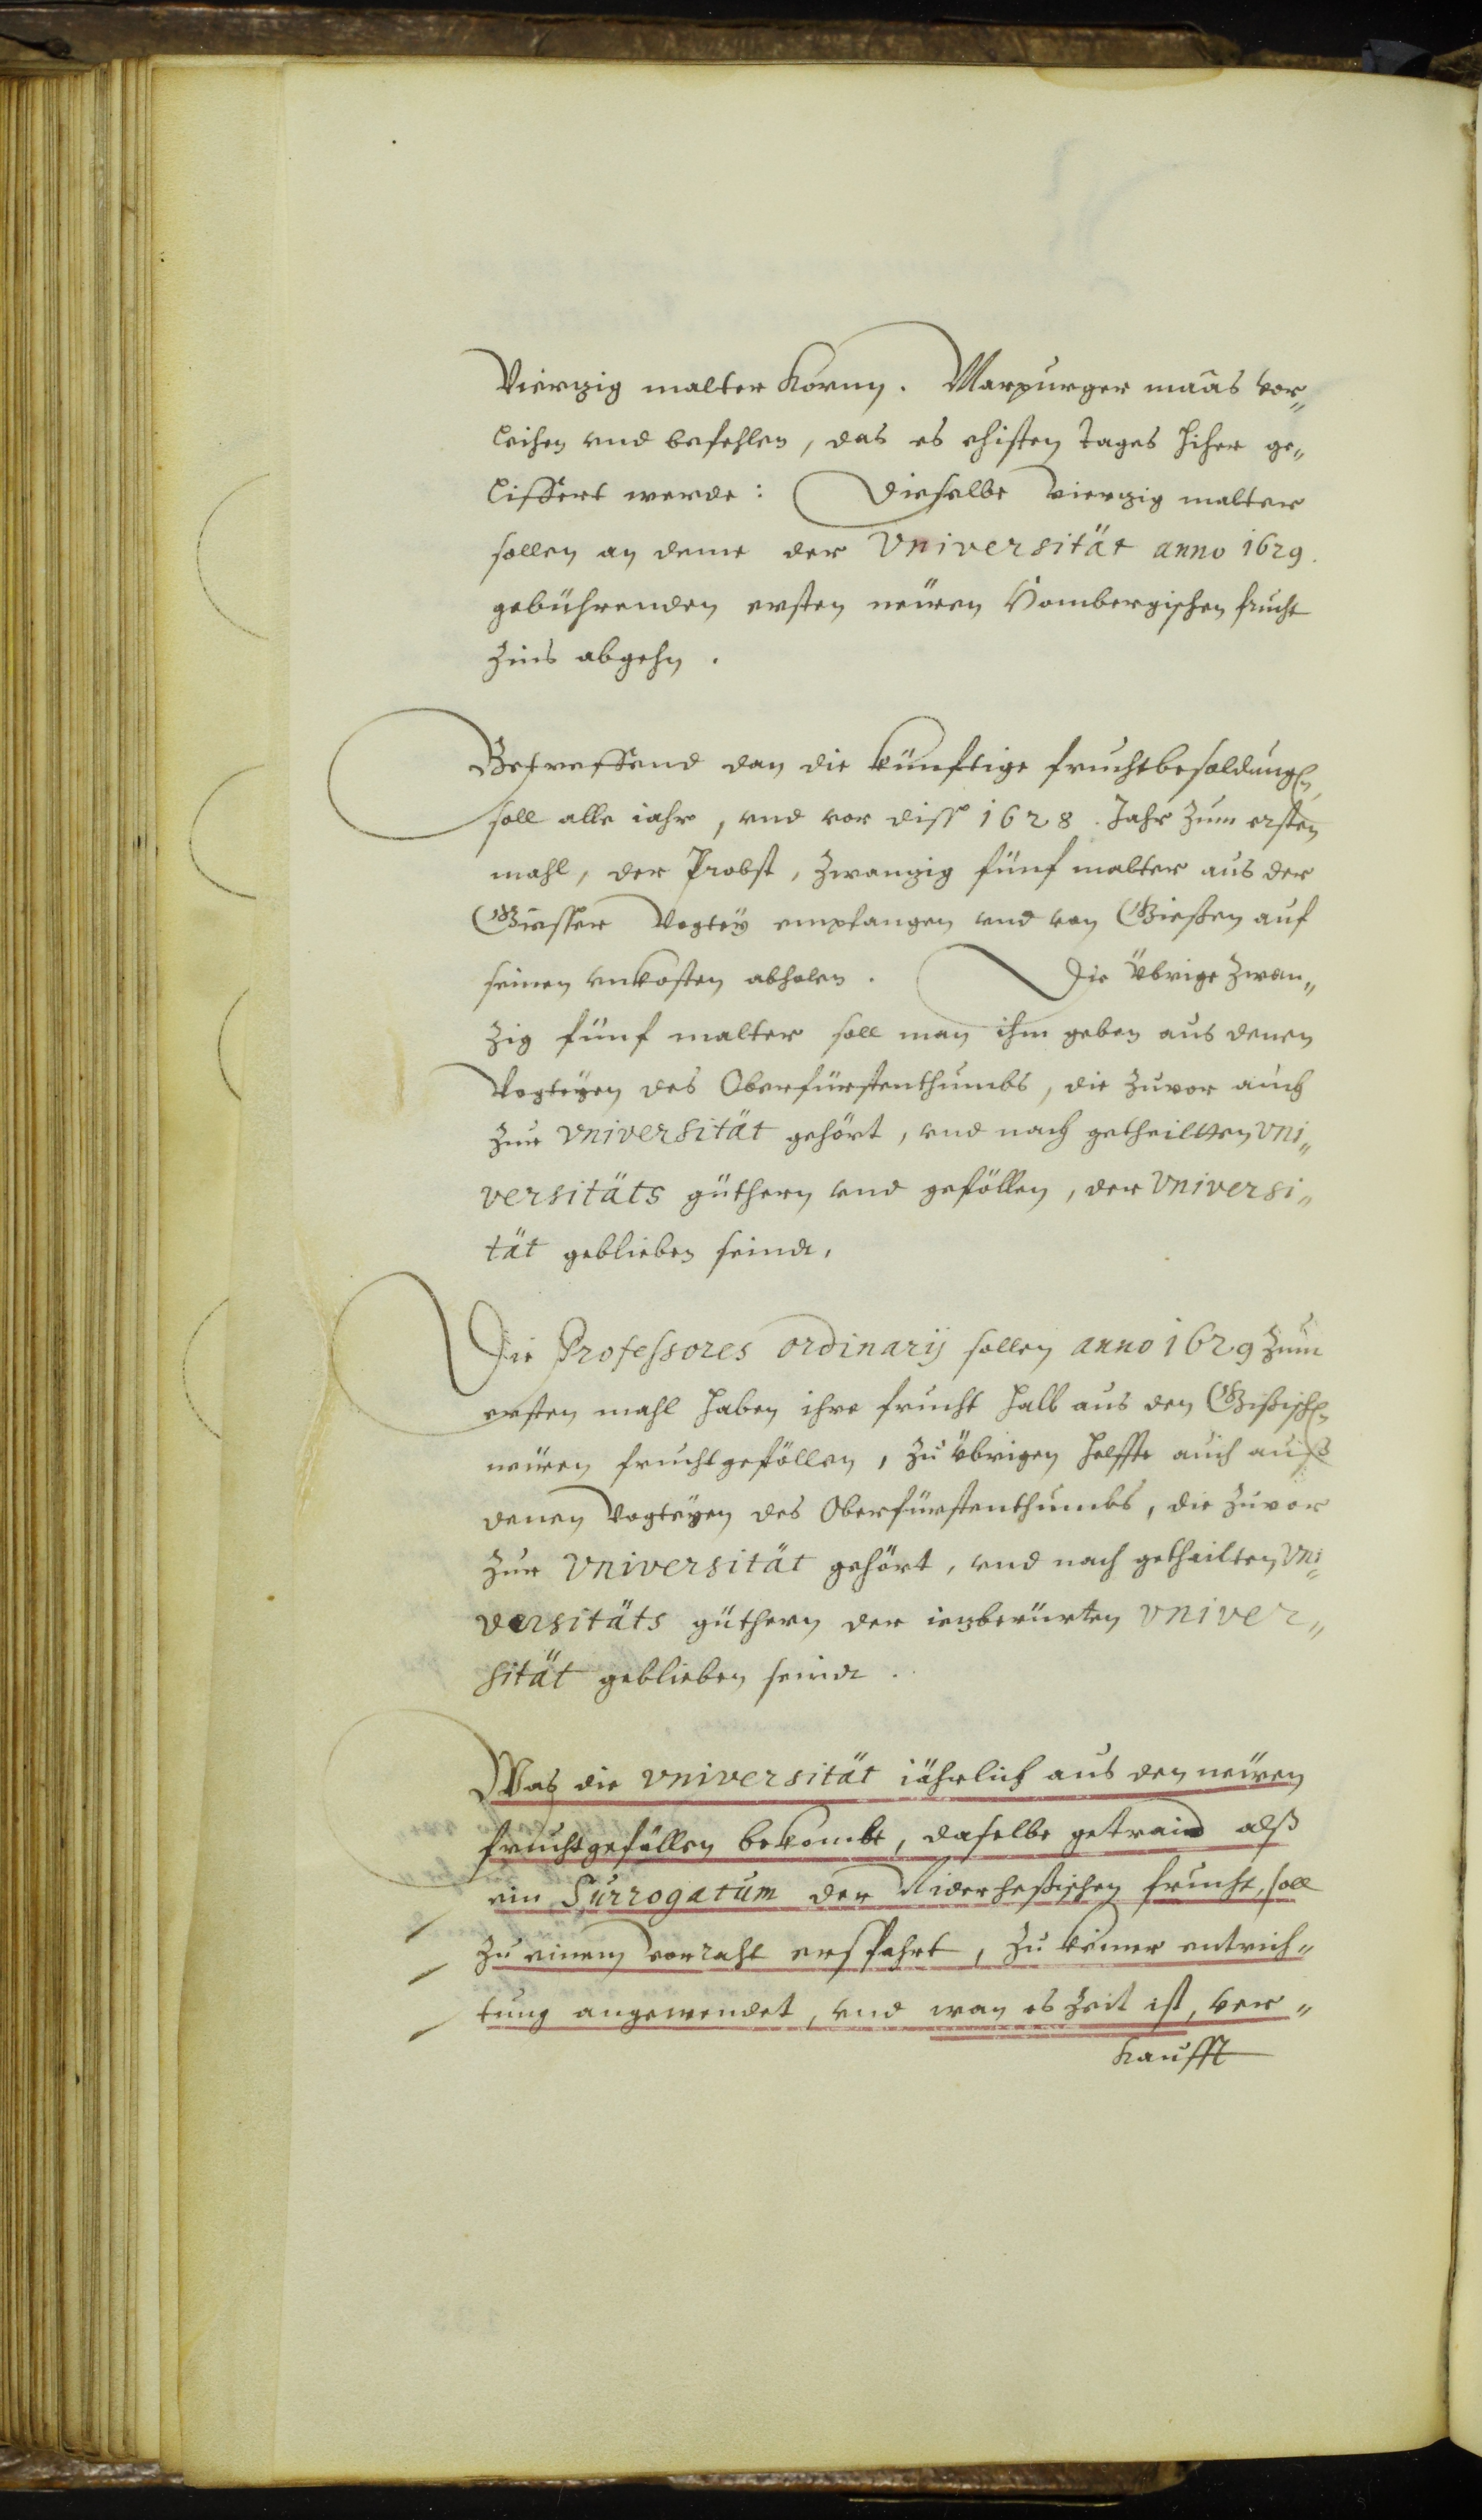 Vierzig malter Korns. Marpurger maas vor„
leihen vnd befehlen, das es ehisten tages hiher ge„
liffert werde: Dieselbe vierzig malter
sollen an deme der Vniversität anno 1629.
gebührenden ersten neüen Hombergischen frucht
Zins abgehn.
Betreffend dan die künftige fruchtbesoldungen,
soll alle iahr, vnd vor diss 1628. Jahr zum ersten
mahl, der Probst, zwanzig fünf malter aus der
Giesser Vogtey empfangen vnd von Gießen auf
seinen vnkosten abholen. Die übrige zwan„
zig fünf malter soll man ihm geben aus denen
Vogteyen des Oberfürstenthumbs, die zuvor auch
zur Vniversität gehört, vnd nach getheiltten Vni„
versitäts güthern vnd gefällen, der Vniversi„
tät geblieben seindt,
Die Professores ordinarij sollen anno 1629 zum
ersten mahl haben ihre frucht halb aus den Gißischen
neüen fruchtgefällen, zu übrigen helffte auch auß
denen Vogteyen des Oberfürstenthumbs, die zuvor
zur Vniversität gehört, vnd nach getheilten Vni„
versitäts güthern der iezberürten Vniver„
sität geblieben seindt.
Was die Vniversität iährlich aus den neüen
fruchtgefällen bekombt, daselbe getraid alß
ein Surrogatum der Niderheßischen frucht, soll
zu einem vorraht erspahrt, zu keiner entrich„
tung angewendet, vnd wan es zeit ist, ver„
kaufft